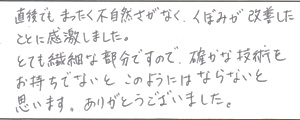 直後でもまったく不自然さがなく、くぼみが改善した
ことに感激しました。
とても繊細な部分ですので、確かな技術を
お持ちでないと このようにはならないと
思います。ありがとうございました。